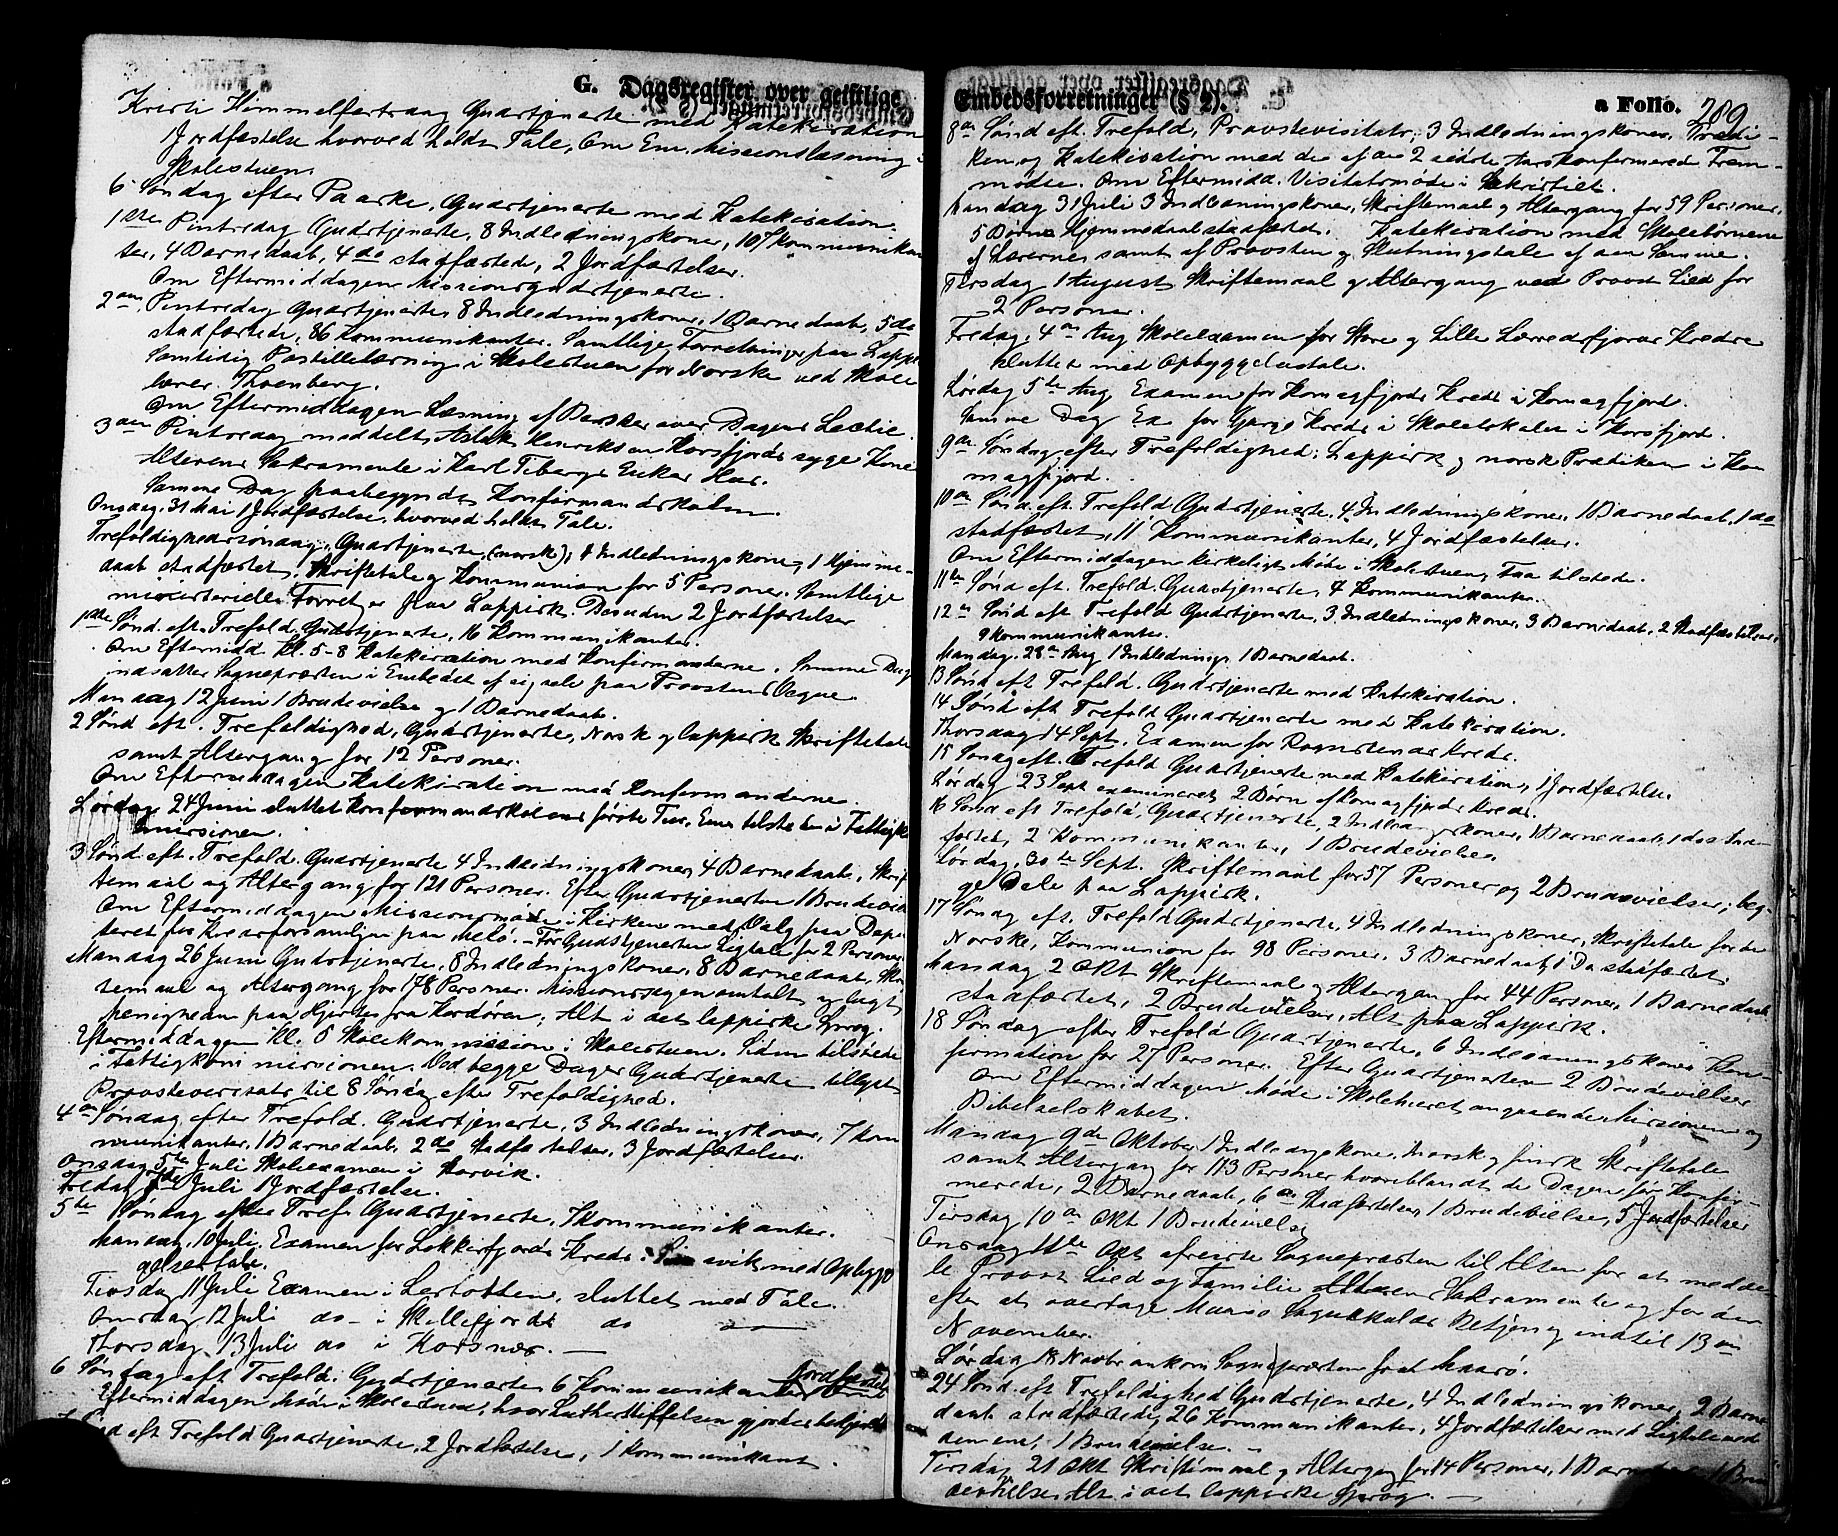 G. Dagsregister over geistlige
Kristi Himmelfartsdag Gudstjeneste med Katekisation
1 Jordfæstelse hvorved holdt Tale, Om Em. Missionslæsning i
Skolestuen.
6 Søndag efter Paaske, Gudstjeneste med Katekisation.
1ste Pintsedag Gudstjeneste, 8 Indledningskoner, 107 Kommunikan
ter, 4 Barnedaab, 4 do stadfæstede, 2 Jordfæstelser.
Om Eftermiddagen Missionsgudstjeneste.
2den Pintsedag Gudstjeneste 8 Indledningskoner, 1 Barnedaab, 5 do
stadfæstede, 86 Kommunikanter. Samtlige Forretninger paa Lappisk
Samtidig Postillelæsning i Skolestuen for Norske ved Skole
lærer Thomberg.
Om Eftermiddagen Læsning af over Dagens Lectie.
3die Pintsedag meddelt Aslak Henriksen Korsfjords syge Kone
Alterens Sakramente i Karl Enkes Hus.
Samme Dag paabegyndt Konfirmandskolen.
Onsdag 31 Mai 1 Jordfæstelse, hvorved holdt Tale.
Trefoldighedssøndag, Gudstjeneste, (norsk), 4 Indledningskoner, 1 Hjemme-
daab stadfæstet, Skriftetale og Kommunion for 5 Personer. Samtlige
ministerielle Forretn. paa Lappisk. Desuden 2 Jordfæstelser
1ste Sønd. eft. Trefold. Gudstjeneste, 16 Kommunikanter.
Om Eftermidd Kl. 5-8 Katekisation med Konfirmanderne. Samme Dag
indsattes Sognepræsten i Embedet af sig selv paa Provstens Vegne.
Mandag 12 Juni 1 Brudevielse og 1 Barnedaab.
2 Sønd eft. Trefoldighed, Gudstjeneste, Norsk og lappisk Skriftetale
samt Altergang for 12 Personer.
Om Eftermiddagen Katekisation med Konfirmanderne.
Lørdag 24 Juni sluttet Konfirmandskolens første Tur. Em. tilstede i Fattigkom
missionen.
3 Sønd. eft. Trefold. Gudstjeneste 4 Indledningskoner, 4 Barnedaab, Skrif
temaal og Altergang for 121 Personer. Efter Gudstjenesten 1 Brudevielse
Om Eftermiddagen Missionsmøde i Kirken med Valg paa Depu
teret for Kredsforsamlgen paa Melö. - Før Gudstjenesten Ligtale for 2 Personer.
Mandag 26 Juni Gudstjeneste, 8 Indledningskoner, 8 Barnedaab, Skrif
temaal og Altergang for 178 Personer. Missionssagen omtalt og lagt
Menigheden paa Hjertet fra Kordøren; Alt i det lappiske Sprog.
Eftermiddagen Kl. 5 Skolekommission i Skolestuen. Siden tilstede
i Fattigkommissionen. Ved begge Dages Gudstjeneste tillyst
Provstevisitats til 8 Søndag efter Trefoldighed.
4de Søndag efter Trefold. Gudstjeneste, 3 Indledningskoner, 7 Kom
munikanter, 1 Barnedaab, 2 do Stadfæstelser, 3 Jordfæstelser.
Onsdag 5te Juli Skoleexamen i Rarvik.
Fredag Juli 1 Jordfæstelse.
5te Søndag efter Tref. Gudstjeneste, 7 Kommunikanter.
Mandag 10 Juli. Examen for Lokkesfjords Kreds i vik med Opbygg
elsestale.
Tirsdag 11 Juli Examen i Lerbotten, sluttet med Tale.
Onsdag 12 Juli do - i Skillefjord do
Thorsdag 13 Juli do i Korsnæs. —
6 Søndag eft Trefold. Gudstjeneste 6 Kommunikanter 1 Jordfæstelse
Eftermiddagen Møde i Skolestuen, hvor Lutherstiftelsen gjordes bekjendt
7 Sønd eft Trefold Gudstjeneste, 2 Jordfæstelse, 1 Kommunikant.
Embedsforretninger (§ 2).
a Folio. 209
8de Sønd eft. Trefold, Provstevisitats, 3 Indledningskoner, Prædi-
ken og Katekisation med de af de 2 sidste Aars Konfirmerede Frem-
mødte. Om Eftermidd. Visitatsmøde i Sakristiet.
Mandag 31 Juli 3 Indledningskoner, Skriftemaal og Altergang for 59 Personer,
5 Børns Hjemmedaab stadfæstet. Katekisation med Skolebørnene
af Lærerne samt af Provsten og Slutningstale af den Samme.
Tirsdag 1 August Skriftemaal og Altergang ved Provst Lied for
2 Personer.
Fredag 4de Aug Skoleexamen for Store og Lille Lerresfjords Kredse
sluttet med Opbyggelsestale.
Lørdag 5te Aug Examen for Komagfjords Kreds i Komagfjord.
Samme Dag Ex for Kreds i Skolelokalet i Korsfjord.
9de Søndag efter Trefoldighed; Lappisk og norsk Prædiken i Ko
magfjord.
10de Sønd. eft. Trefold Gudstjeneste, 4 Indledningskoner, 1 Barnedaab, 1 do
stadfæstet, 11 Kommunikanter, 4 Jordfæstelser.
Om Eftermiddagen kirkeligt Møde i Skolestuen, Faa tilstede.
11te Sønd eft. Trefold. Gudstjeneste, 4 Kommunikanter.
12te Sønd eft. Trefold Gudstjeneste, 3 Indledningskoner, 3 Barnedaab, 2 Stadfæstelser,
9 Kommunikanter.
Mandag 28de Aug 1 Indlednings. 1 Barnedaab.
13 Sønd eft Trefold. Gudstjeneste med Katekisation.
14 Sønd eft Trefold Gudstjeneste med Katekisation.
Thorsdag 14 Sept. Examen for Rognsundets Kreds.
15 Søndag eft. Trefold Gudstjeneste med Katekisation, 1 Jordfæstelse
Lørdag 23 Sept examineret 2 Børn af Komagfjords Kreds.
16 Sønd eft Trefold, Gudstjeneste, 2 Indledngskoner, 1 Barnedaab, 1 do Stad
fæstet, 2 Kommunikanter, 1 Brudevielse.
Lørdag 30te Sept. Skriftemaal for 57 Personer og 2 Brudevielser; beg-
ge Dele paa Lappisk.
17 Søndg eft. Trefold Gudstjeneste, 4 Indledningskoner, Skriftetale for de
Norske, Kommunion for 98 Personer. 3 Barnedaab, 1 Do stadfæstet.
Mandag 2 Okt Skriftemaal og Altergang for 44 Personer, 1 Barnedaab
stadfæstet, 2 Brudevielser, Alt paa Lappisk.
18 Søndag efter Trefold Gudstjeneste, 6 Indledningskoner Kon-
firmation for 27 Personer. Efter Gudstjenesten 2 Brudevielser
Om Eftermiddagen Møde i Skolehuset angaaende Missionen og
Bibelselskabet.
Mandag 9de Oktober 1 Indledngskone, Norsk og finsk Skriftetale
samt Altergang for 113 Personer hvoriblandt de Dagen før Konfir-
merede, 2 Barnedaab, 6 do Stadfæstelser, 1 Brudevielse, 5 Jordfæstelser
Tirsdag 10de Okt 1 Brudevielse
Onsdag 11te Okt afreiste Sognepræsten til Alten for at medde-
le Provst Lied og Familie Alterens Sakramente og for der
efter at overtage Maasø Sognekalds Betjeng indtil 13de
November.
Lørdag 18 Novbr ankom Sognepræsten fra Maasö.
24 Sønd. eft Trefoldighed Gudstjeneste, 4 Indledningskoner, 2 Barne
daab stadfæstede, 26 Kommunikanter, 4 Jordfæstelser med Ligtale ved
den ene, 1 Brudevielse. -
Tirsdag 21 Okt Skriftemaal og Altergang for 14 Personer, 1 Barnedaab 1 Bru
devielse Alt i det lappiske Sprog. —